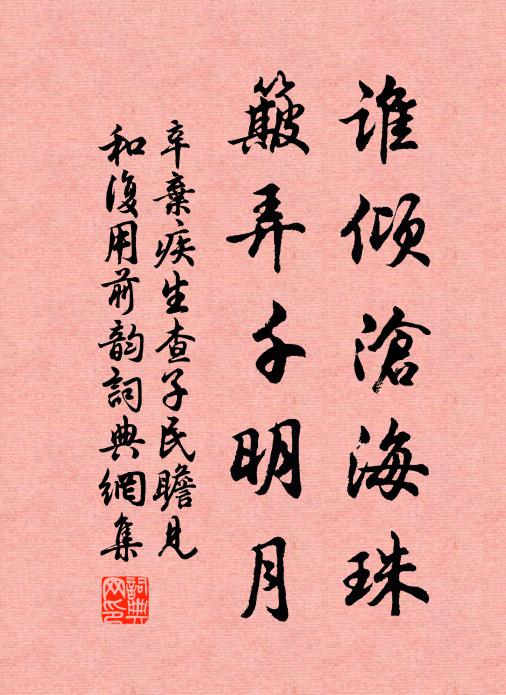 谁倾滄海珠
簸弄千明月
辛棄疾生查子民瞻見
和復用前韵詞典網集
詞典
网印